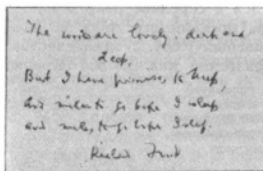 The woods are lovely, dark and
deep,
But I have promises to keep,
and miles to go before I sleep
and miles to go before I sleep.